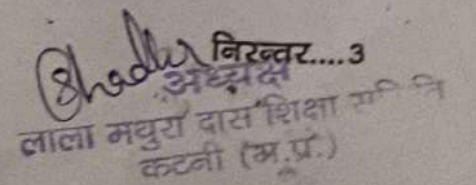 निरन्तर....3
अध्यक्ष
लाला मथुरा दास शिक्षा समिति
कटनी (म.प्र.)